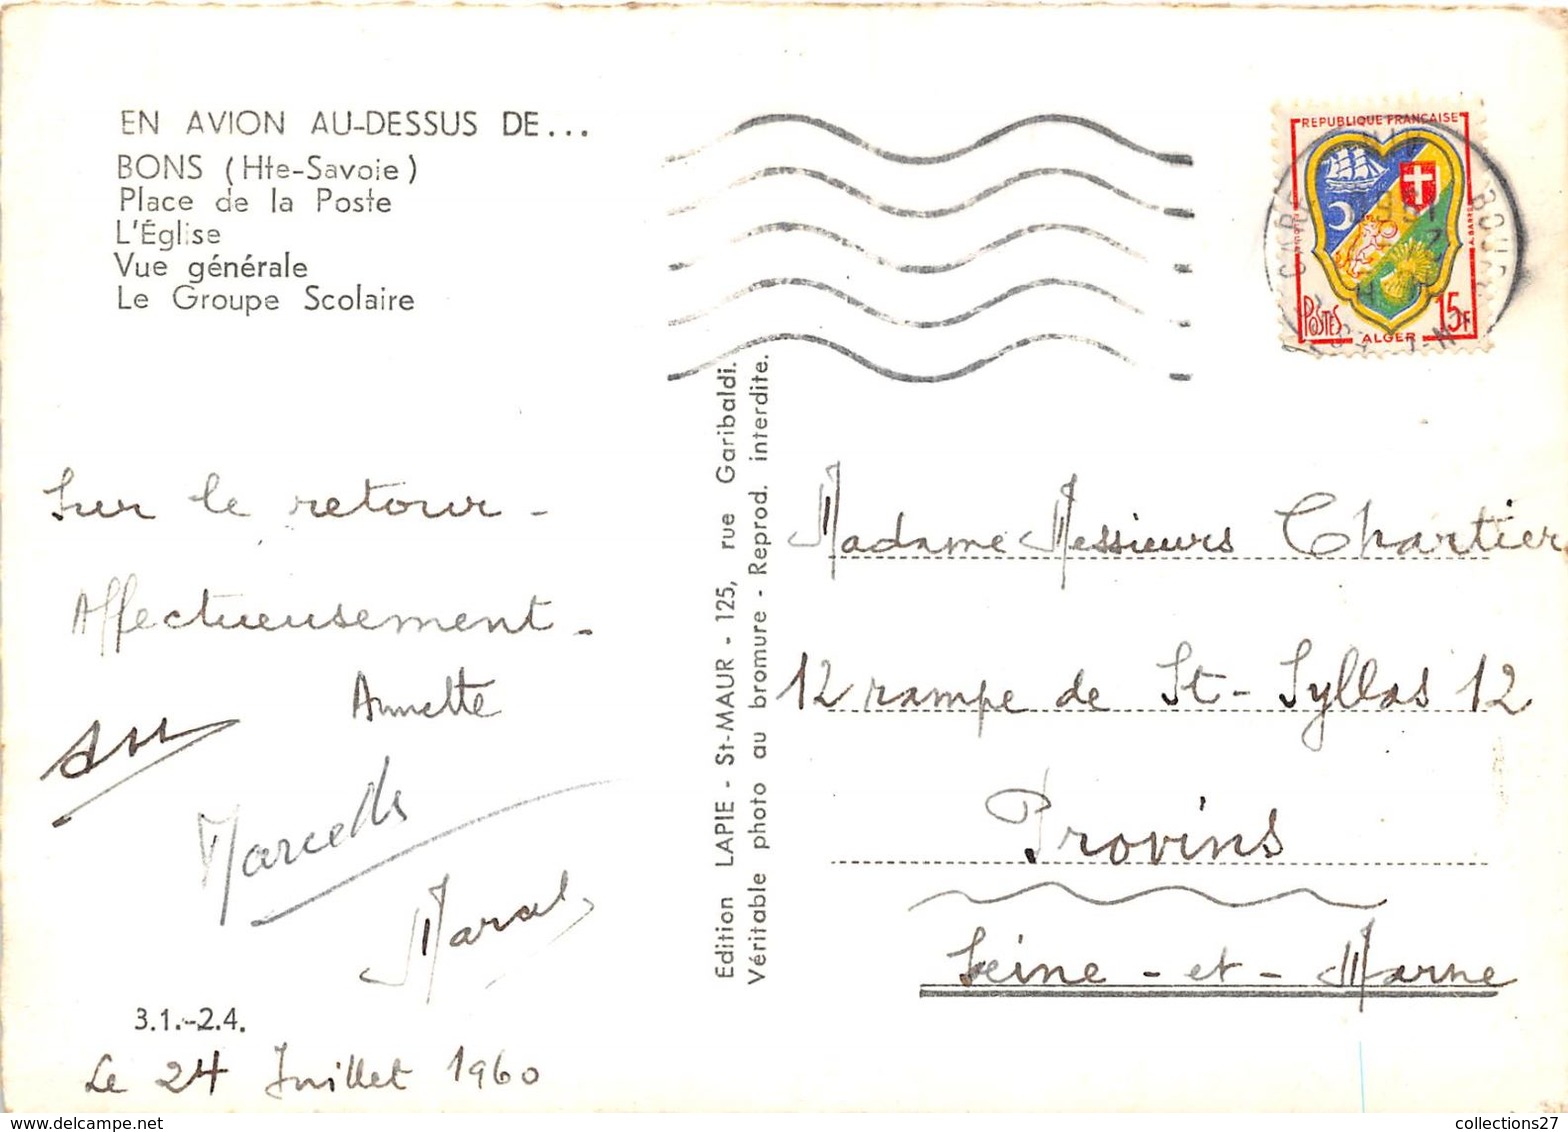 EN AVION AU-DESSUS DE...
BONS (Hte-Savoie)
Place de la Poste
L'Église
Vue générale
Le Groupe Scolaire
Sur le retour -
Affectueusement -
Annette
Marcelle
Marcel
3.1.-2.4.
Le 24 Juillet 1960
Edition LAPIE - St-MAUR - 125, rue Garibaldi.
Véritable photo au bromure - Reprod. interdite.
REPUBLIQUE FRANÇAISE
POSTES
15F
ALGER
Madame Messieurs Chartier
12 rampe de St-Syllas 12
Provins
Seine - et - Marne
collections27